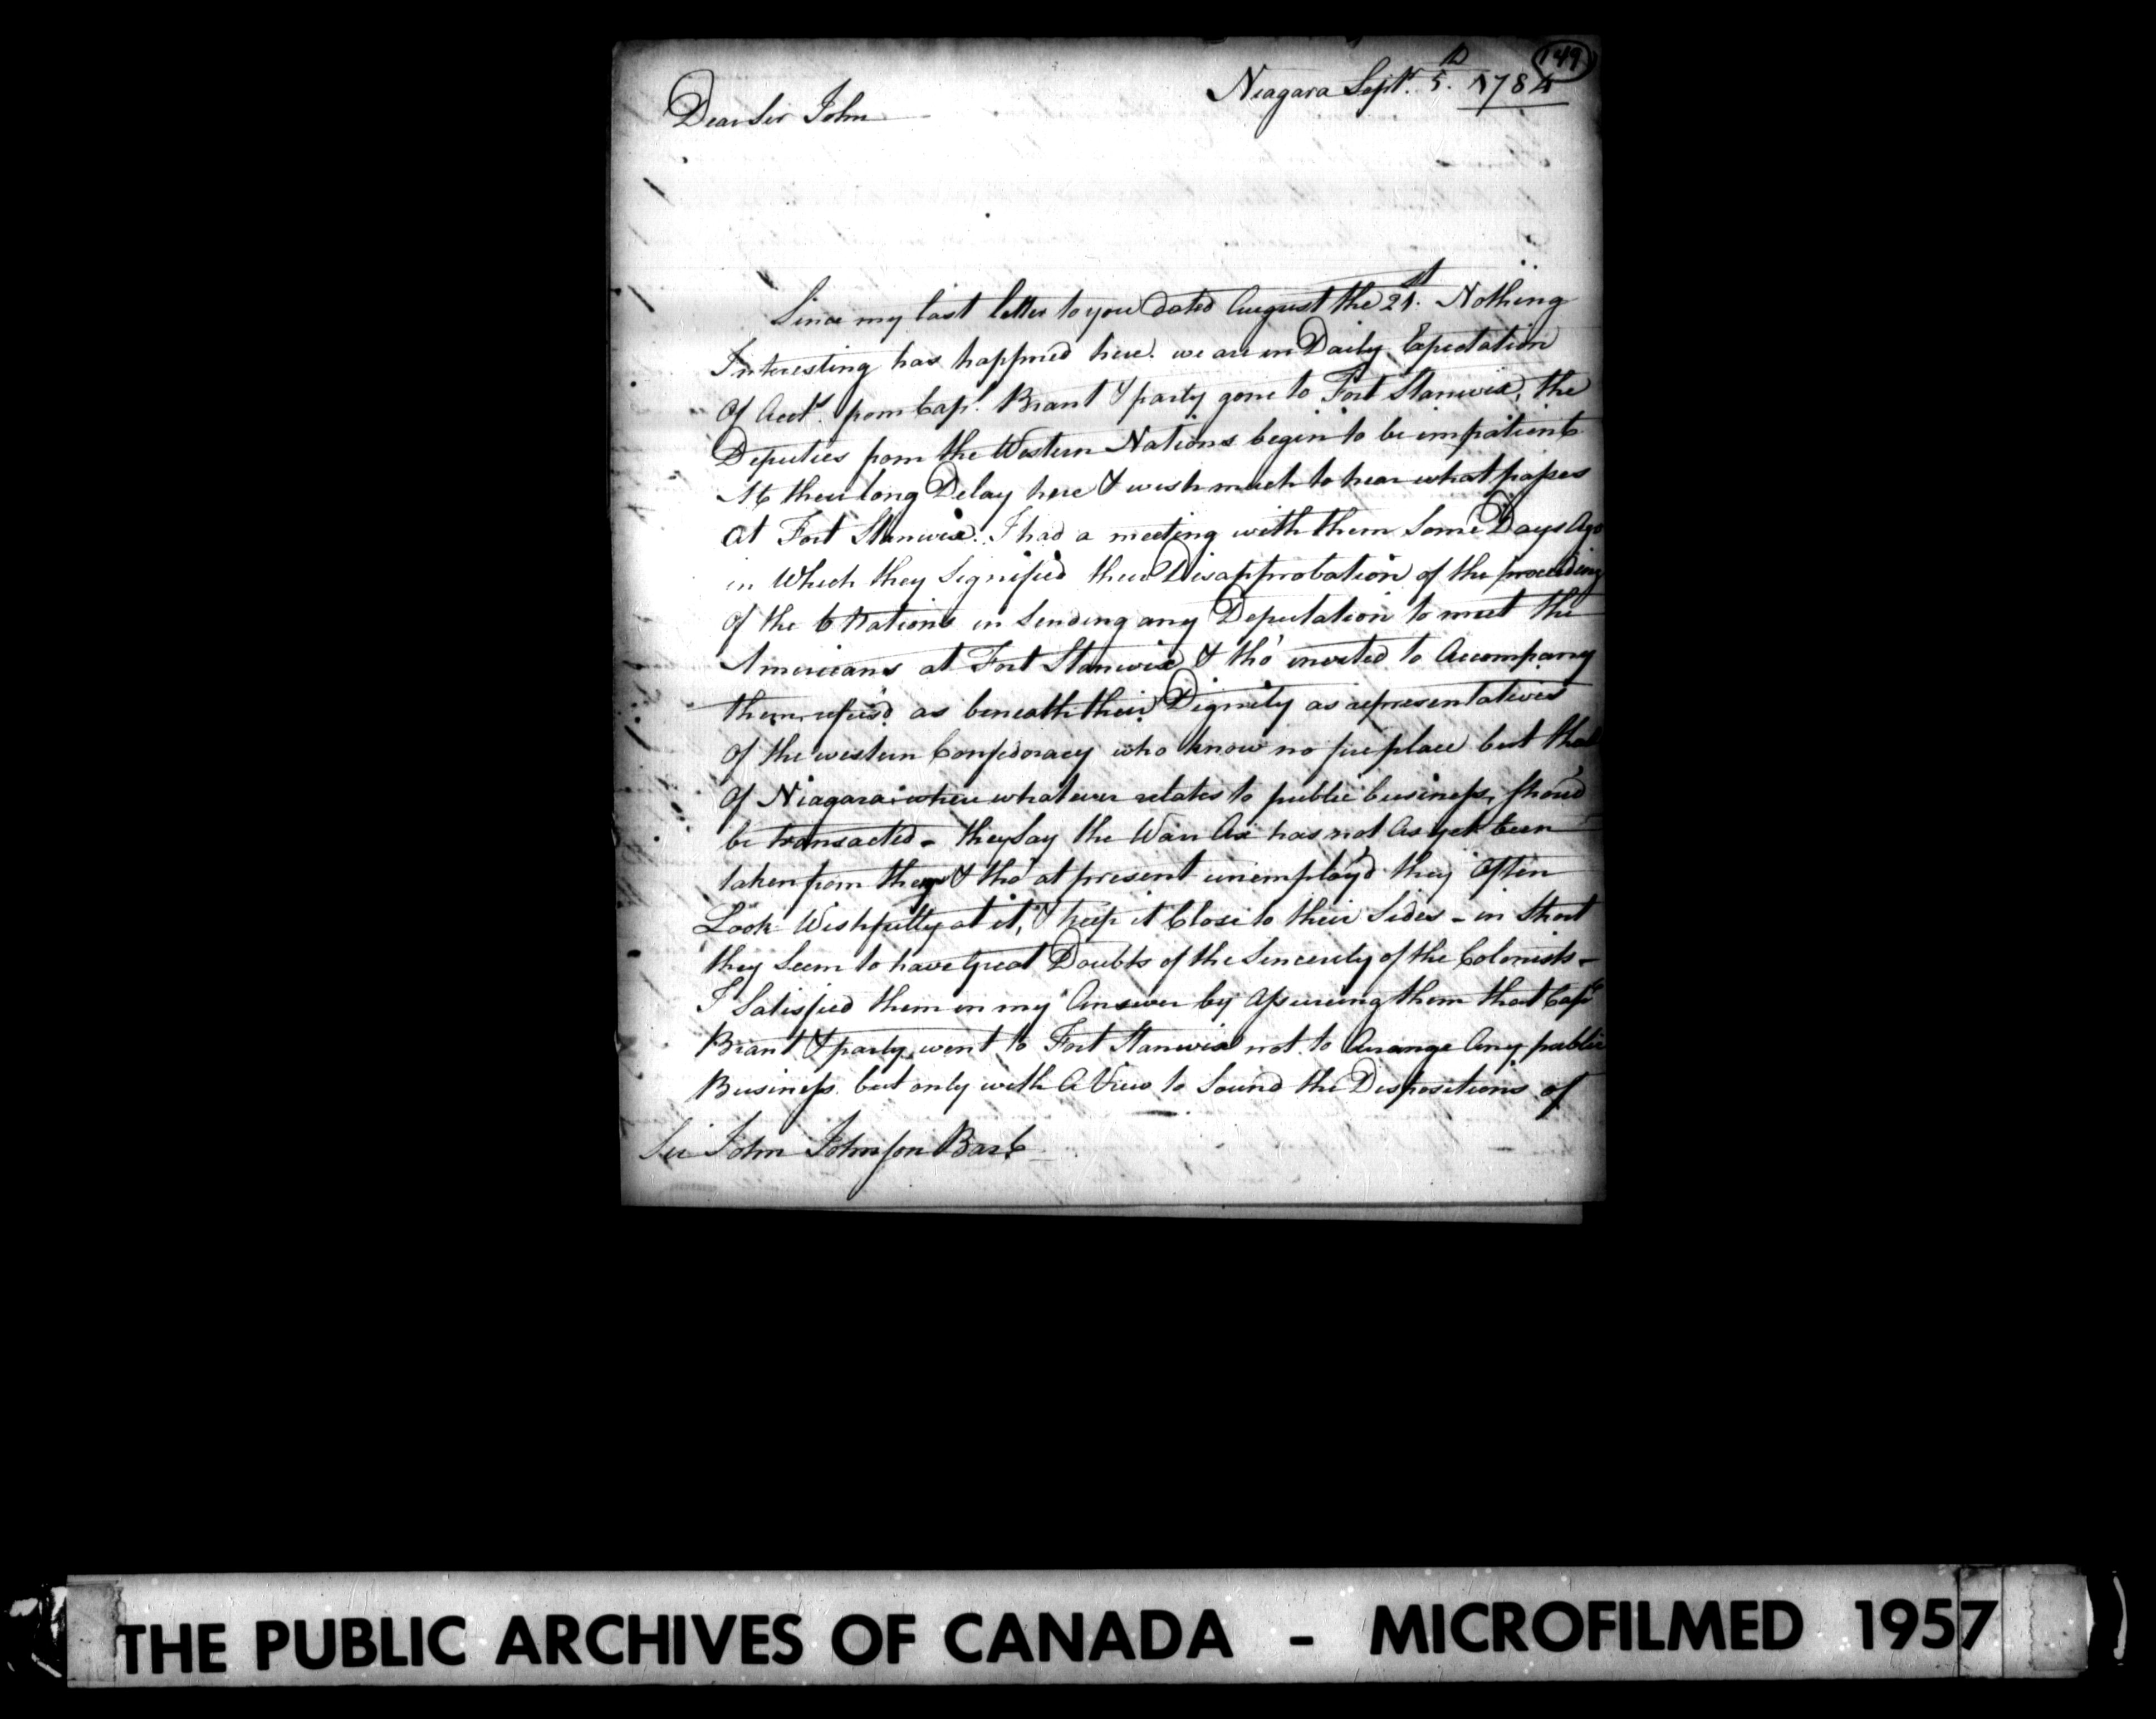 149
Niagara Sept. 5th. 1784
Dear Sir John
Since my last letter to you dated August the 21st. Nothing
Interesting has happned here. we are in Daily Expectation
Of Acct. from Capt. Brant & party gone to Fort Stanwix, the
Deputies from the Western Nations begin to be impatient
At their long Delay here & wish much to hear what passes
at Fort Stanwix. I had a meeting with them Some Days Ago
in Which they Signified their Disapprobation of the proceeding
Of the 6 Nations in Sending any Deputation to meet the
Americans at Fort Stanwix, & tho' invited to Accompany
them refus'd as beneath their Dignity as representatives
Of the western Confederacy who know no fire place but that
Of Niagara where whatever relates to public business, shou'd
be transacted - they Say the War Ax has not As yet been
taken from them & tho' at present unemploy'd they Often
Look Wishfully at it, & keep it Close to their Sides - in Short
they Seem to have Great Doubts of the Sincerity of the Colonists -
I Satisfied them in my Answer by Assureing them that Capt
Brant & party went to Fort Stanwix not to Arrange Any public
Business but only with A View to Sound the Dispositions of
Sir John Johnson Bart
THE PUBLIC ARCHIVES OF CANADA - MICROFILMED 1957